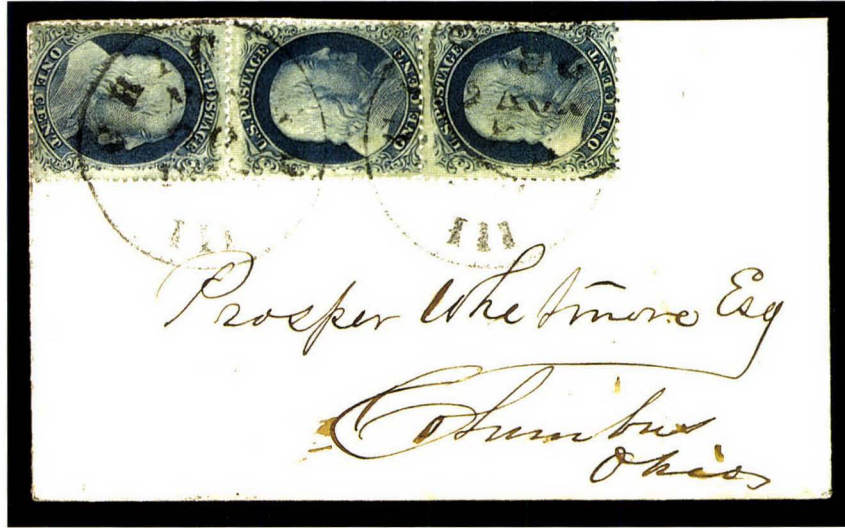 U.S. POSTAGE
ONE CENT
U.S. POSTAGE
ONE CENT
U.S. POSTAGE
ONE CENT
Prosper Whetmore Esq
Columbus
Ohio